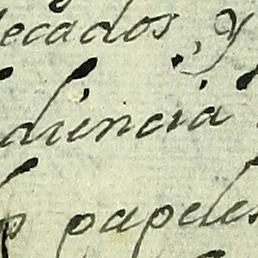 ecados, y
diencia
papeles